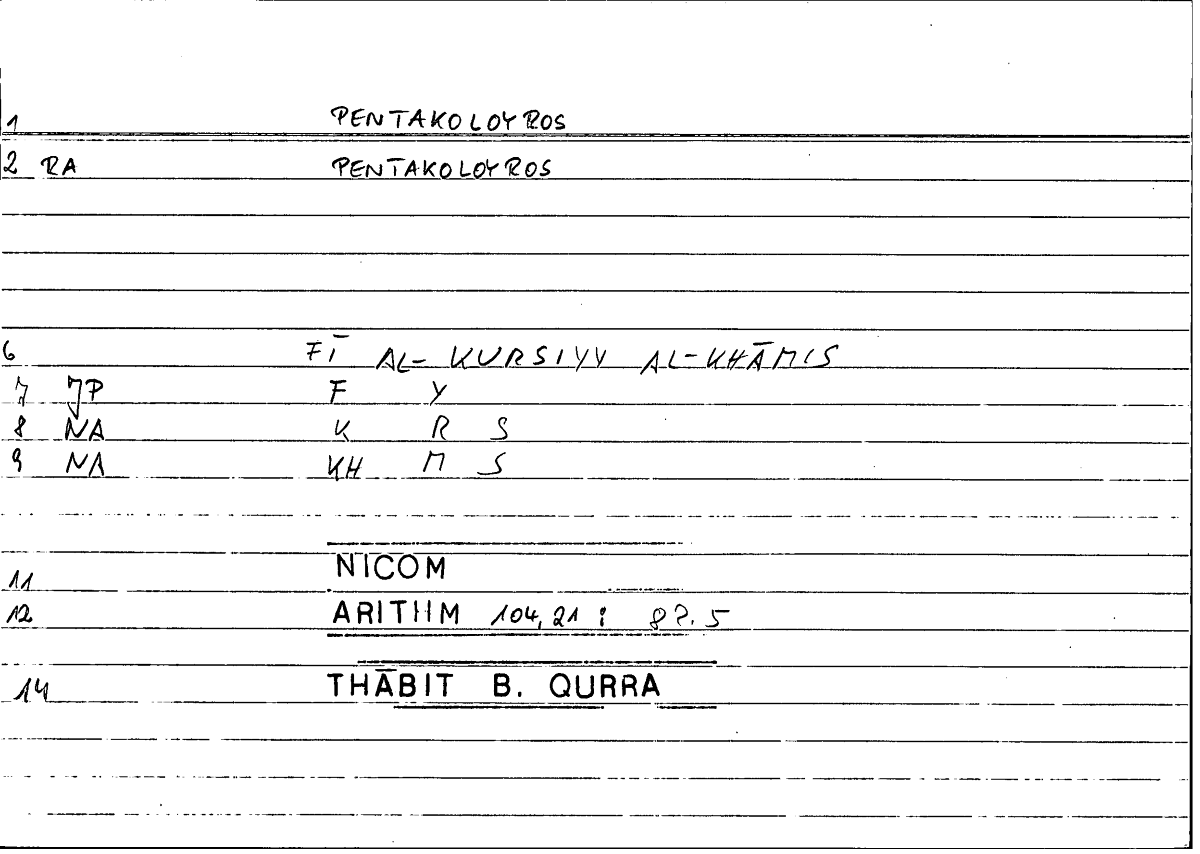 1 PENTAKOLOYROS
2 RA PENTAKOLOYROS
6 FĪ AL-KURSIYY AL-KHĀMIS
7 JP F Y
8 NA K R S
9 NA KH M S
11 NICOM
12 ARITHM 104,21 : 87.5
14 THĀBIT B. QURRA